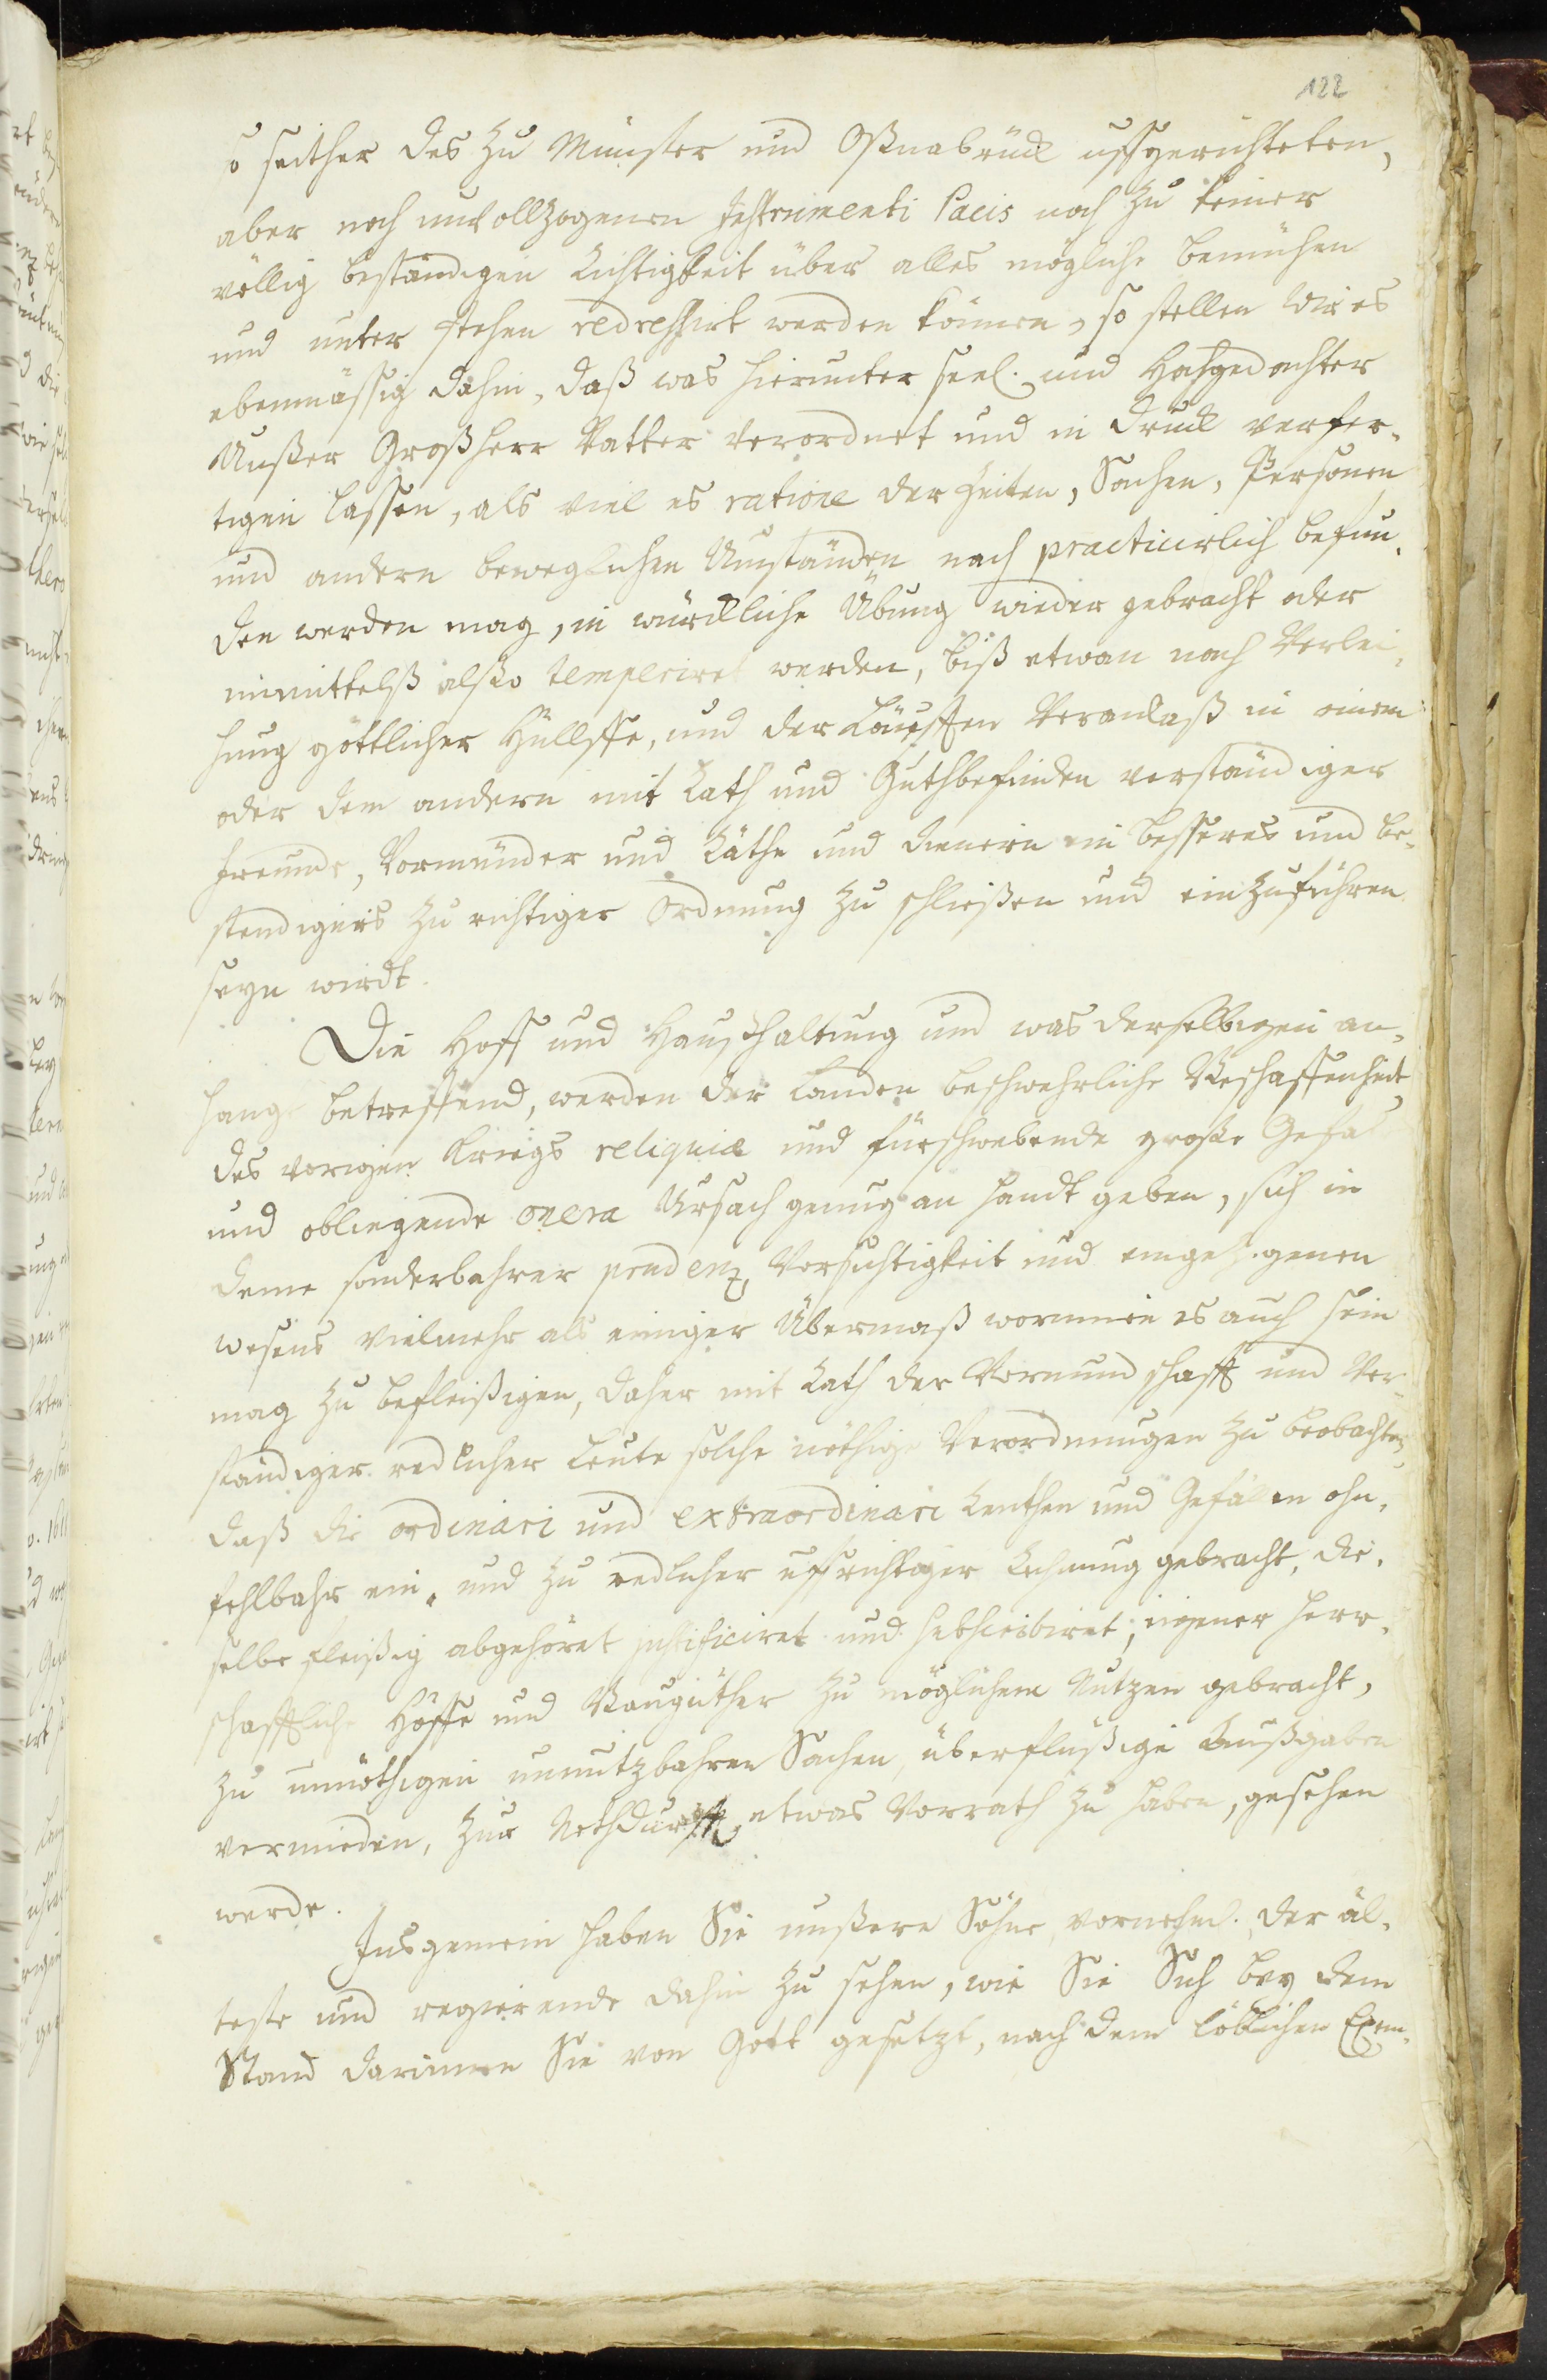 122
so seither des zu Münster und Oßnabrück uffgerichteten,
aber noch unvollzogenen Instrumenti Pacis noch zu keiner
völlig beständigen Richtigkeit über alles mögliche bemühen
und unter stehen redressirt werden können, so stellen wir es
ebenmässig dahin, daß was hierunter seel. und Hochgedachter
Unßer Großherr Vatter verordnet und in Druck verfer-
tigen lassen, als viel es ratione der Zeiten, Sachen, Personen
und andern beweglichen Umständen nach practicirlich befun-
den werden mag, in würckliche Übung wieder gebracht oder
inmittelß alßo temperiret werden, biß etwan nach Verlei-
hung göttlicher Hüllffe, und der Läufften Veranlaß in einem
oder dem andern mit Rath und Guthbefinden verständiger
Freunde, Vormünder und Räthe und Dienern ein besseres und be-
stendigers zu richtiger Ordnung zu schließen und einzuführen
seyn wirdt.
Die Hoff und Haußhaltung und was derselbigen an-
hangt betreffend, werden der Landen beschwehrliche Beschaffenheit
des vorigen Kriegs reliquiæ und fürschwebende große Gefa
und obliegende onera Ursach genug an handt geben, sich in
deme sonderbahrer prudenz, Vorsichtigkeit und eingezogenen
wesens vielmehr als einiger Übermaß worinnen es auch sein
mag zu befleißigen, daher mit Rath der Vormundschafft und Ver-
ständiger redlicher Leute solche nöthige Verordnungen zu beobachten,
daß die ordinari und extraordinari Renthen und Gefällen ohn-
fehlbahr ein- und zu redlicher uffrichtiger Rechnung gebracht, die-
selbe fleißig abgehöret justificiret und subscribiret, eigener Herr-
schafftliche Höffe und Baugüther zu möglichem Nutzen gebracht,
zu unnöthigen unnutzbahren Sachen, überflüßige Außgaben
vermieden, zur Nothdurfft etwas Vorrath zu haben, gesehen
werde.
Insgemein haben Sie unßere Söhne, vornehml. der äl-
teste und regierende dahin zu sehen, wie Sie Sich bey dem
Stand darinnen Sie von Gott gesetzt, nach dem löblichen Exem-